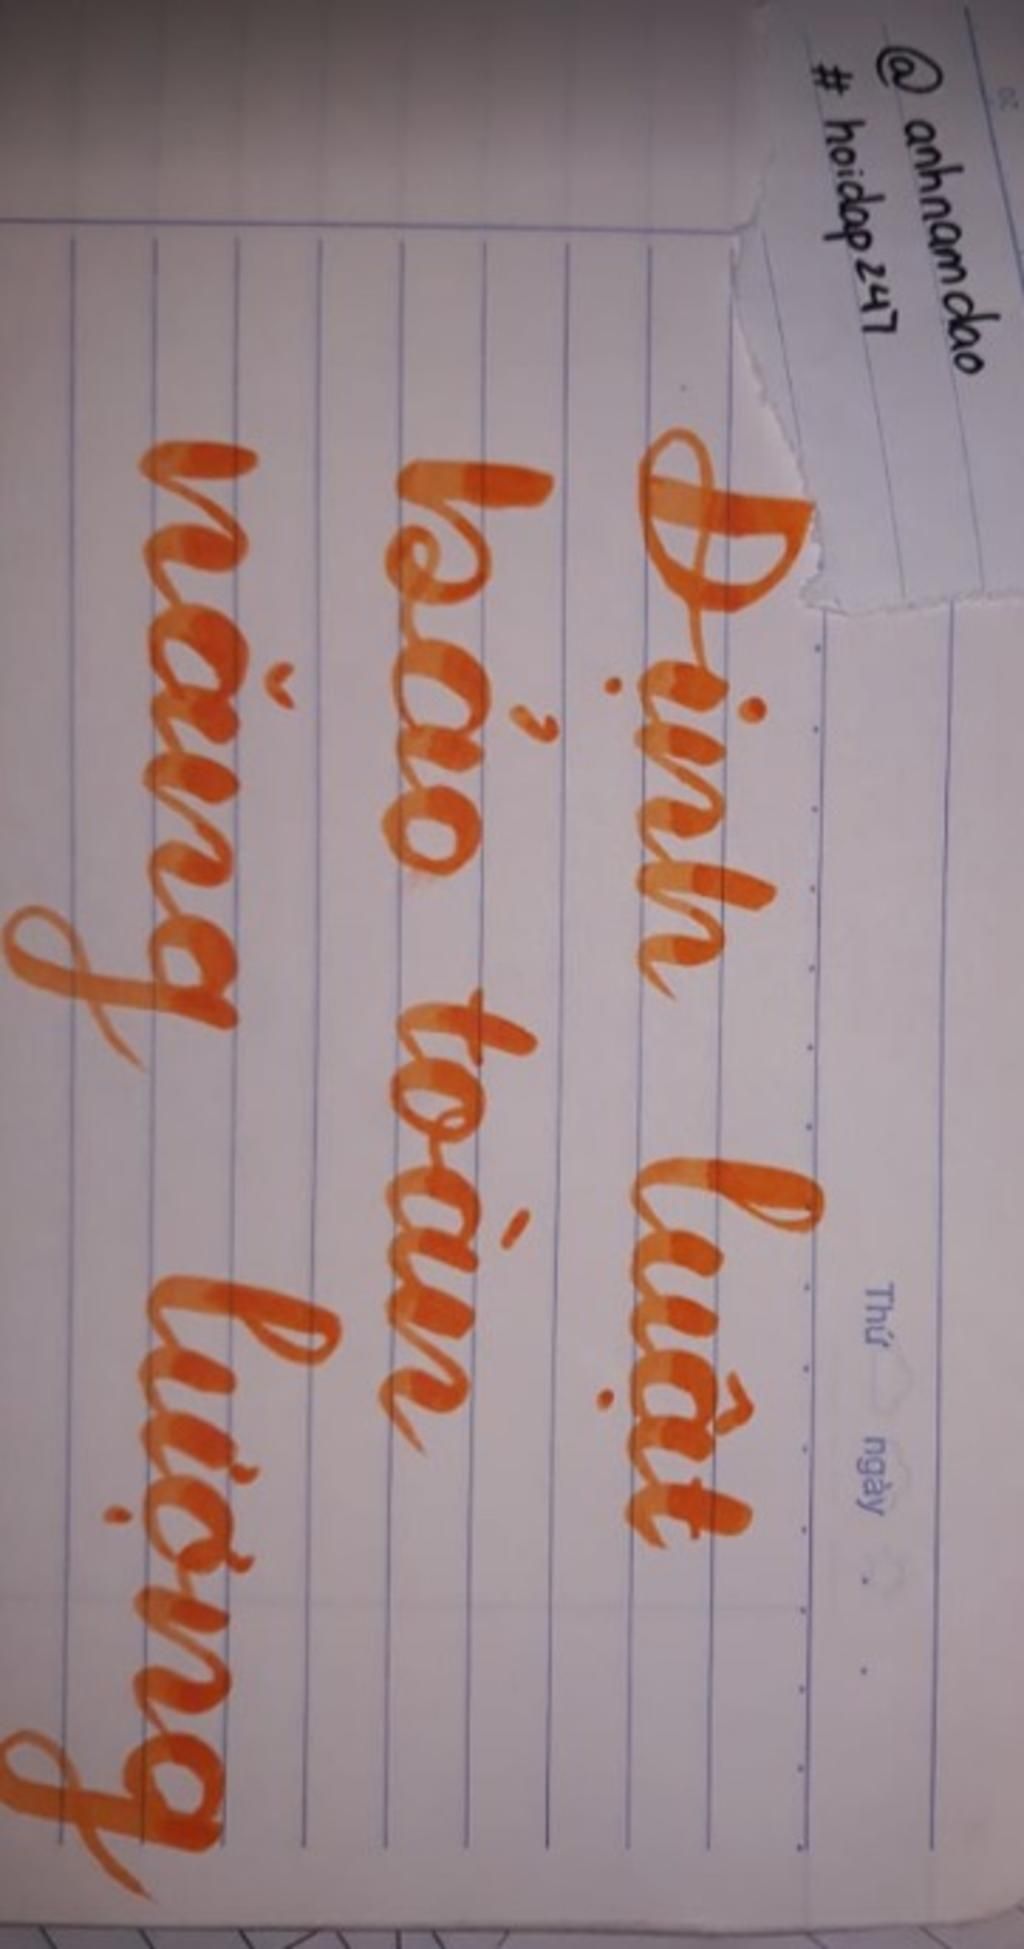 @ anhnamdao
# hoidap247
Thứ ngày
Định luật
bảo toàn
năng lượng